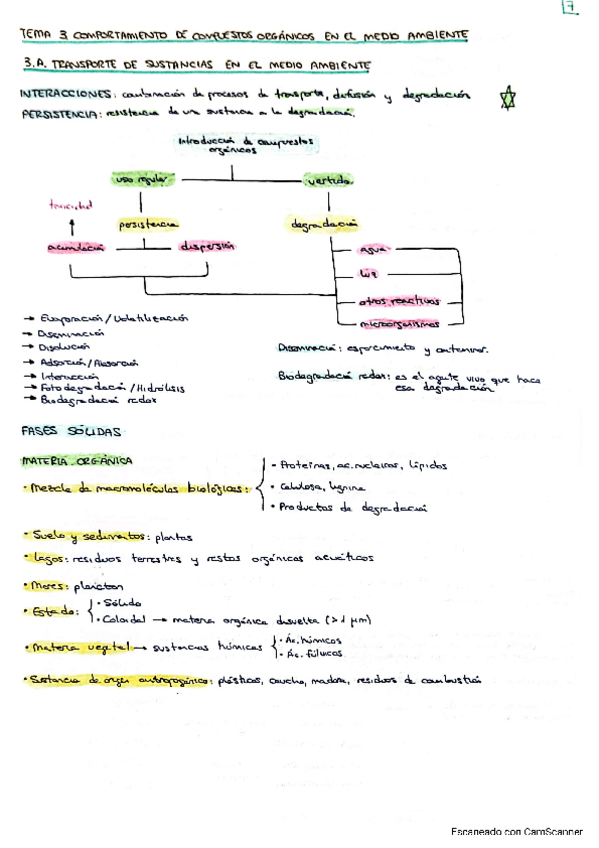 7
TEMA 3 COMPORTAMIENTO DE COMPUESTOS ORGÁNICOS EN EL MEDIO AMBIENTE
3.A. TRANSPORTE DE SUSTANCIAS EN EL MEDIO AMBIENTE
INTERACCIONES: combinación de procesos de transporte, difusión y degradación
PERSISTENCIA: resistencia de una sustancia a la degradación.
Introducción de compuestos
orgánicos
uso regular
vertido
toxicidad
persistencia
degradación
acumulación
dispersión
agua
luz
otros reactivos
microorganismos
→ Evaporación/Volatilización
→ Diseminación
→ Disolución
→ Adsorción/Absorción
→ Interacción
→ Fotodegradación/Hidrólisis
→ Biodegradación redox
Diseminación: esparcimiento y contaminar.
Biodegradación redox: es el agente vivo que hace
esa degradación
FASES SÓLIDAS
MATERIA ORGÁNICA
• Mezcla de macromoléculas biológicas:
• Proteínas, ac. nucleicos, lípidos
• Celulosa, lignina
• Productos de degradación
• Suelo y sedimentos: plantas
• Lagos: residuos terrestres y restos orgánicos acuáticos
• Mares: plancton
• Estado:
• Sólido
• Coloidal → materia orgánica disuelta (>1 µm)
• Materia vegetal → sustancias húmicas
• Ác. húmicos
• Ác. fúlvicos
• Sustancia de origen antropogénico: plásticos, caucho, madera, residuos de combustión
Escaneado con CamScanner